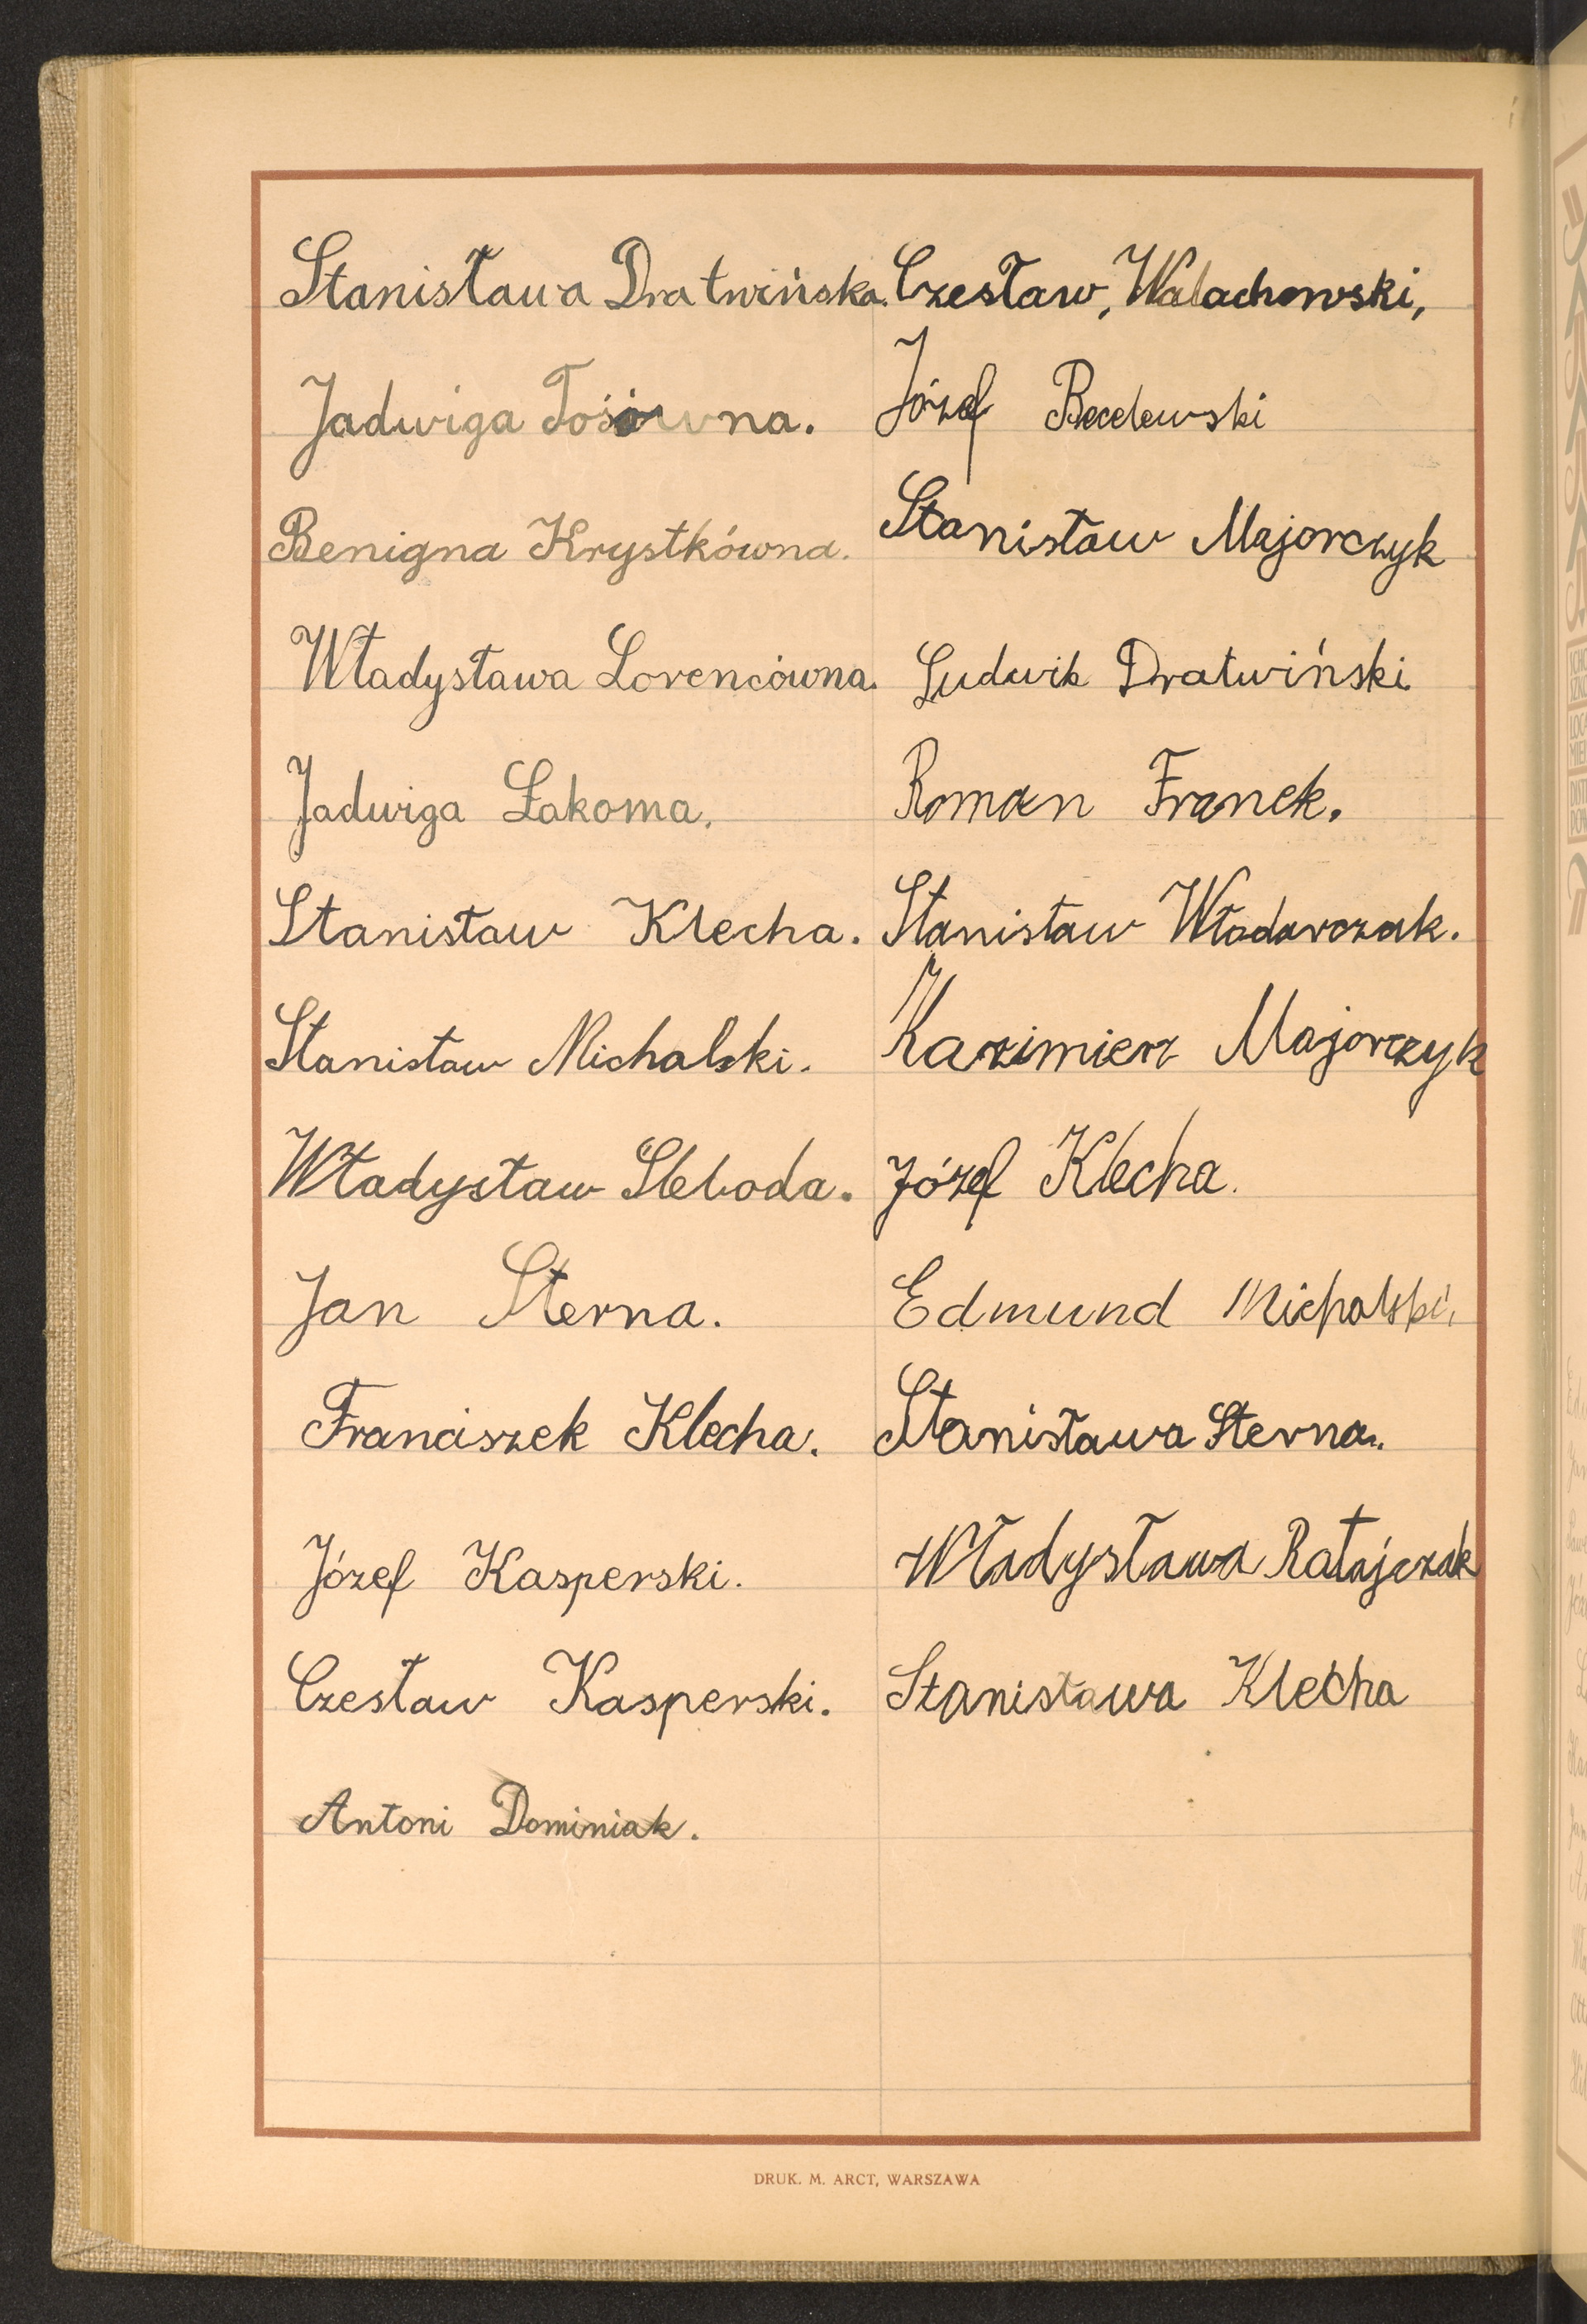 Stanisława Dratwińska.
Jadwiga Tosiówna.
Benigna Krystkówna.
Władysława Lorencówna.
Jadwiga Łakoma.
Stanisław Klecha.
Stanisław Michalski.
Władysław Śleboda.
Jan Sterna.
Franciszek Klecha.
Józef Kasperski.
Czesław Kasperski.
Antoni Dominiak.
Czesław, Walachowski,
Józef Becelewski
Stanisław Majorczyk
Ludwik Dratwiński
Roman Franek.
Stanisław Włodarczak.
Kazimierz Majorczyk
Józef Klecha.
Edmund Michalski,
Stanisława Sterna.
Władysława Ratajczak
Stanisława Klecha
DRUK. M. ARCT, WARSZAWA